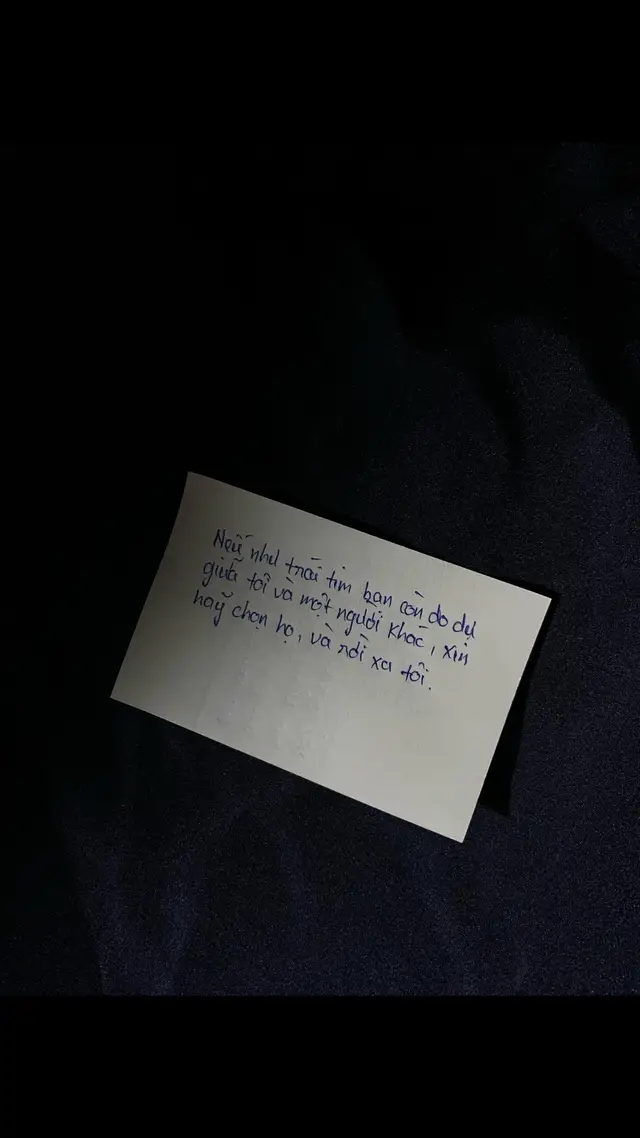 Nếu như trái tim bạn còn do dự
giữa tôi và một người khác, xin
hãy chọn họ, và rời xa tôi.